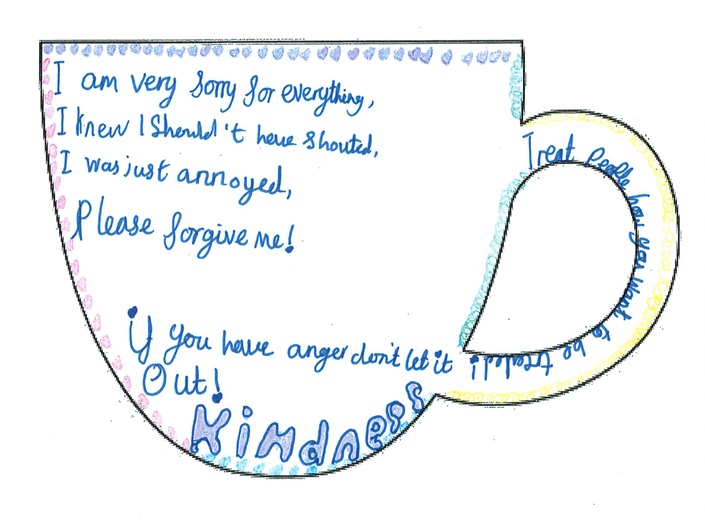 I am very sorry for everything,
I knew I Should't have shouted,
I was just annoyed,
Please forgive me!
if you have anger don't let it
Out!
Kindness
Treat People how you want to be treded!